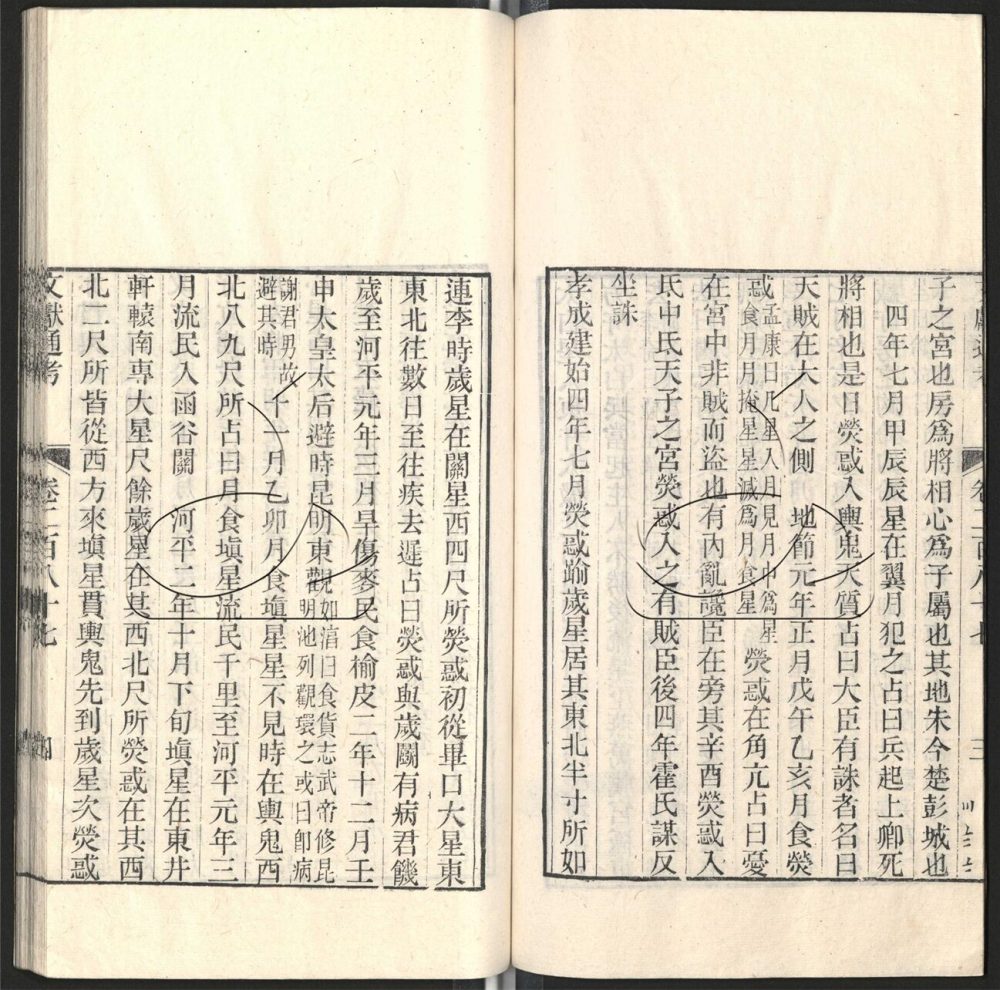 子之宮也房爲將相心爲子屬也其地朱今楚彭城也
四年七月甲辰辰星在翼月犯之占曰兵起上卿死
將相也是日熒惑入輿鬼天質占曰大臣有誅者名曰
天賊在大人之側 地節元年正月戊午乙亥月食熒
惑孟康曰凡星入月見月中爲星食月月掩星星滅爲月食星 熒惑在角亢占曰憂
在宮中非賊而盜也有內亂讒臣在旁其辛酉熒惑入
氐中氐天子之宮熒惑入之有賊臣後四年霍氏謀反
坐誅
孝成建始四年七月熒惑踰歲星居其東北半寸所如
連李時歲星在關星西四尺所熒惑初從畢口大星東
東北往數日至往疾去遲占曰熒惑與歲鬬有病君饑
歲至河平元年三月旱傷麥民食榆皮二年十二月壬
申太皇太后避時昆明東觀如淳曰食貨志武帝修昆明池列觀環之或曰卽病
謝君男故避其時 十一月乙卯月食塡星星不見時在輿鬼西
北八九尺所占曰月食塡星流民千里至河平元年三
月流民入函谷關 河平二年十月下旬塡星在東井
軒轅南耑大星尺餘歲星在其西北尺所熒惑在其西
北二尺所皆從西方來塡星貫輿鬼先到歲星次熒惑
文獻通考 卷二百八十七 四